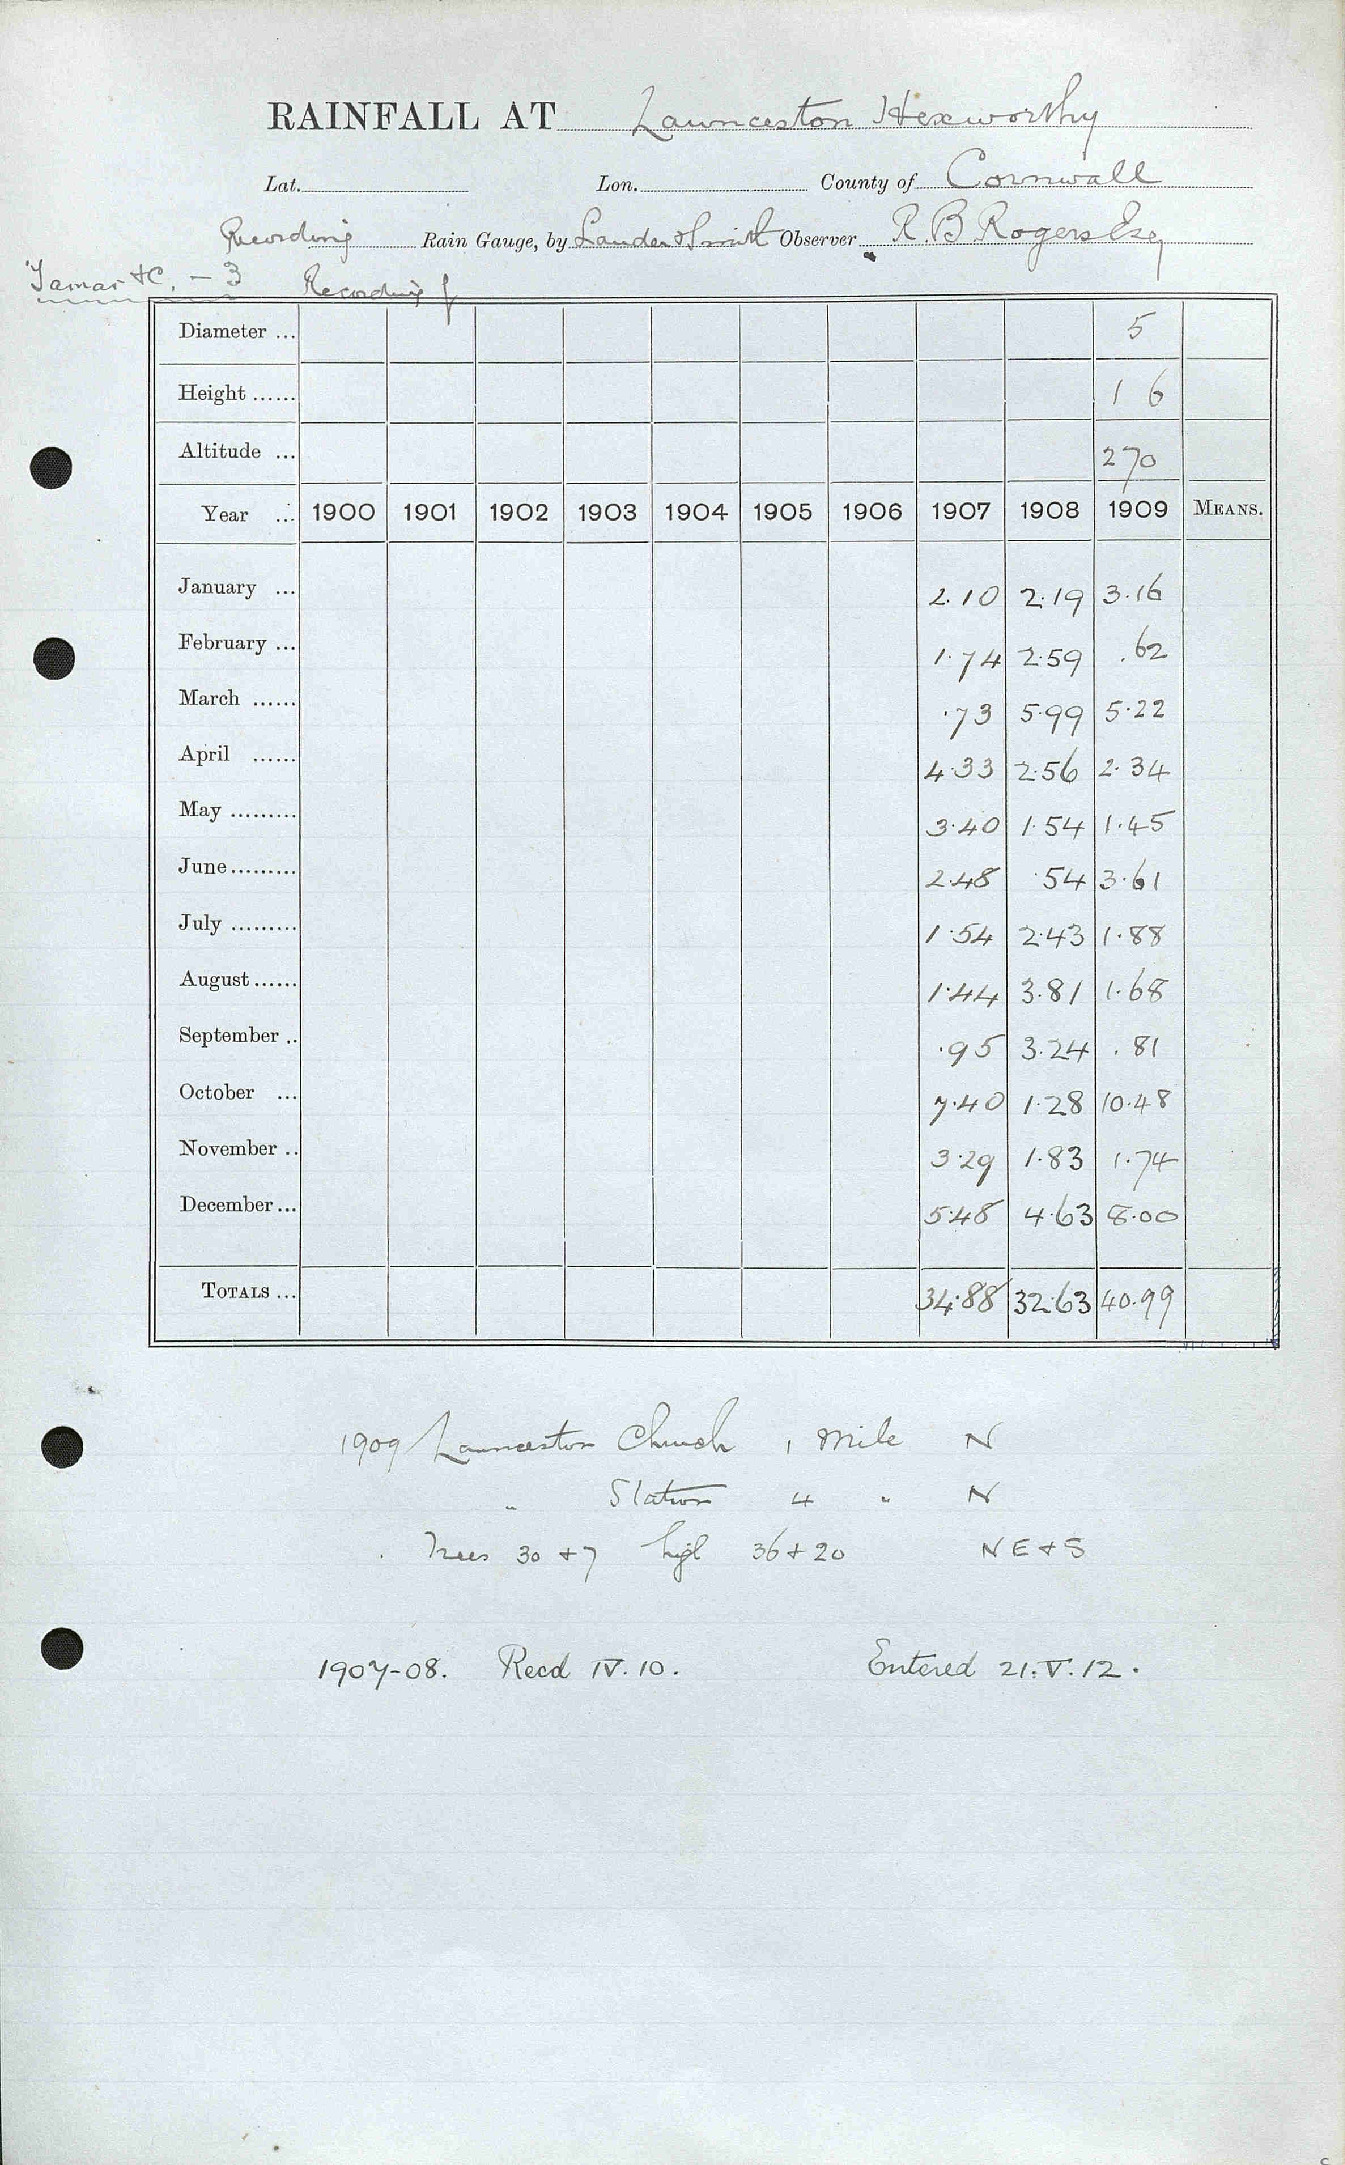 RAINFALL AT Launceston Hexworthy
Lat. Lon. County of Cornwall
Recording Rain Gauge, by Lander & Smith Observer R. B. Rogers Esq
Tamar &c. - 3 Recording
Diameter ... 5
Height ...... 1 6
Altitude ... 270
Year ... 1900 1901 1902 1903 1904 1905 1906 1907 1908 1909 MEANS.
January ... 2.10 2.19 3.16
February ... 1.74 2.59 .62
March ...... .73 5.99 5.22
April ...... 4.33 2.56 2.34
May ......... 3.40 1.54 1.45
June ......... 2.48 .54 3.61
July ......... 1.54 2.43 1.88
August ...... 1.44 3.81 1.68
September .. .95 3.24 .81
October ... 7.40 1.28 10.48
November .. 3.29 1.83 1.74
December ... 5.48 4.63 8.00
TOTALS ... 34.88 32.63 40.99
1909 Launceston Church 1 Mile N
" Station 4 " N
Trees 30 + 7 high 36 + 20 NE + S
1907-08. Recd IV. 10. Entered 21. V. 12.